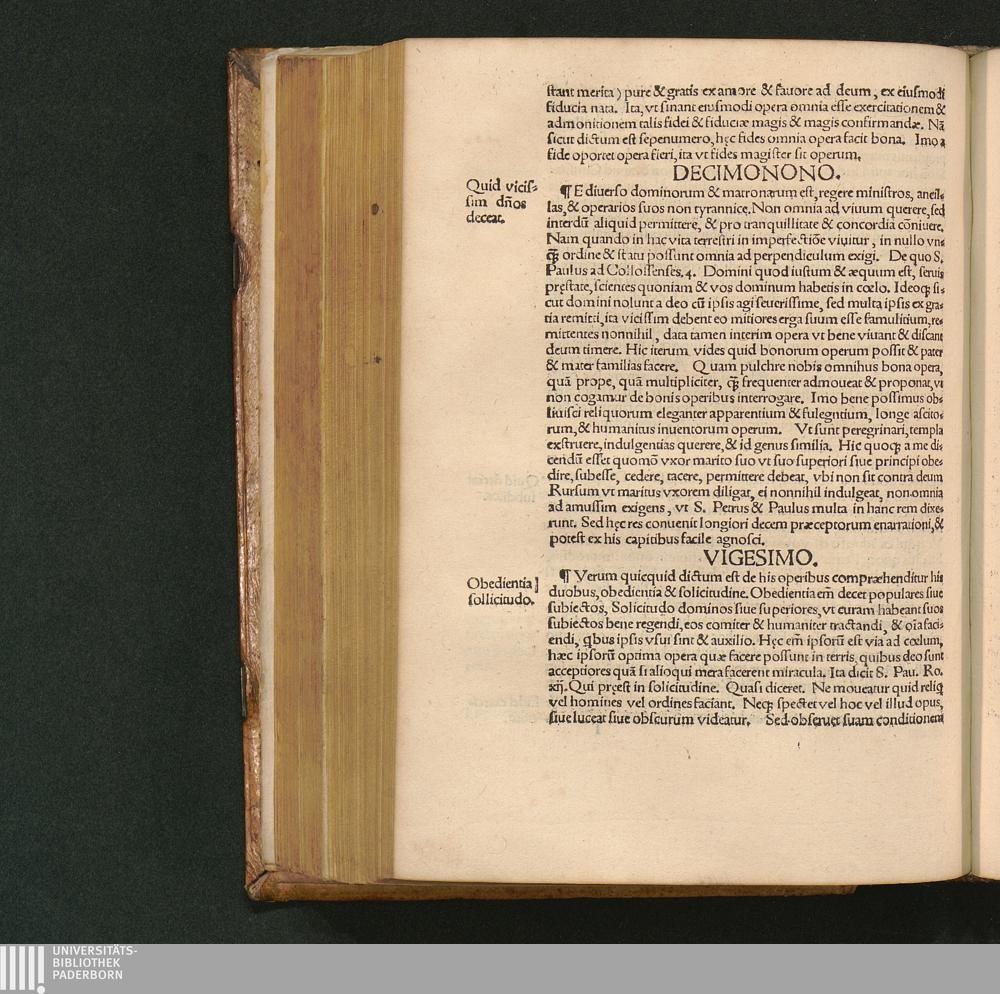 stant merita) pure & gratis ex amore & fauore ad deum, ex eiusmodi
fiducia nata. Ita, vt sinant eiusmodi opera omnia esse exercitationem &
admonitionem talis fidei & fiduciæ magis & magis confirmandæ. Nã
sicut dictum est sepenumero, hęc fides omnia opera facit bona. Imo a
fide oportet opera fieri, ita vt fides magister sit operum.
DECIMONONO.
Quid vicis-
sim dños
deceat.
¶ E diuerso dominorum & matronarum est, regere ministros, ancil-
las, & operarios suos non tyrannice. Non omnia ad viuum querere, sed
interdũ aliquid permittere, & pro tranquillitate & concordia cõniuere.
Nam quando in hac vita terrestri in imperfectiõe viuitur, in nullo vn-
q̃ ordine & statu possunt omnia ad perpendiculum exigi. De quo S.
Paulus ad Collossenses. 4. Domini quod iustum & æquum est, seruis
pręstate, scientes quoniam & vos dominum habetis in cœlo. Ideoq; si-
cut domini nolunt a deo cũ ipsis agi seuerissime, sed multa ipsis ex gra-
tia remitti, ita vicissim debent eo mitiores erga suum esse famulitium, re-
mittentes nonnihil, data tamen interim opera vt bene viuant & discant
deum timere. Hic iterum vides quid bonorum operum possit & pater
& mater familias facere. Quam pulchre nobis omnibus bona opera,
quã prope, quã multipliciter, q̃ frequenter admoueat & proponat, vt
non cogamur de bonis operibus interrogare. Imo bene possimus ob-
liuisci reliquorum eleganter apparentium & fulgentium, longe ascito-
rum, & humanitus inuentorum operum. Vt sunt peregrinari, templa
exstruere, indulgentias querere, & id genus similia. Hic quoq; a me di-
cendũ esset quomõ vxor marito suo vt suo superiori siue principi obe-
dire, subesse, cedere, tacere, permittere debeat, vbi non sit contra deum
Rursum vt maritus vxorem diligat, ei nonnihil indulgeat, non omnia
ad amussim exigens, vt S. Petrus & Paulus multa in hanc rem dixe-
runt. Sed hęc res conuenit longiori decem præceptorum enarrationi, &
potest ex his capitibus facile agnosci.
VIGESIMO.
Obedientia
sollicitudo.
¶ Verum quicquid dictum est de his operibus compræhenditur his
duobus, obedientia & solicitudine. Obedientia em̃ decet populares siue
subiectos, Solicitudo dominos siue superiores, vt curam habeant suos
subiectos bene regendi, eos comiter & humaniter tractandi, & oĩa faci-
endi, qbus ipsis vsui sint & auxilio. Hęc em̃ ipsorũ est via ad cœlum,
hæc ipsorũ optima opera quæ facere possunt in terris, quibus deo sunt
acceptiores quã si alioqui mera facerent miracula. Ita dicit S. Pau. Ro.
xij. Qui pręest in solicitudine. Quasi diceret. Ne moueatur quid reliq
vel homines vel ordines faciant. Necq; spectet vel hoc vel illud opus,
siue luceat siue obscurum videatur. Sed obseruet suam conditionem
UNIVERSITÄTS-
BIBLIOTHEK
PADERBORN